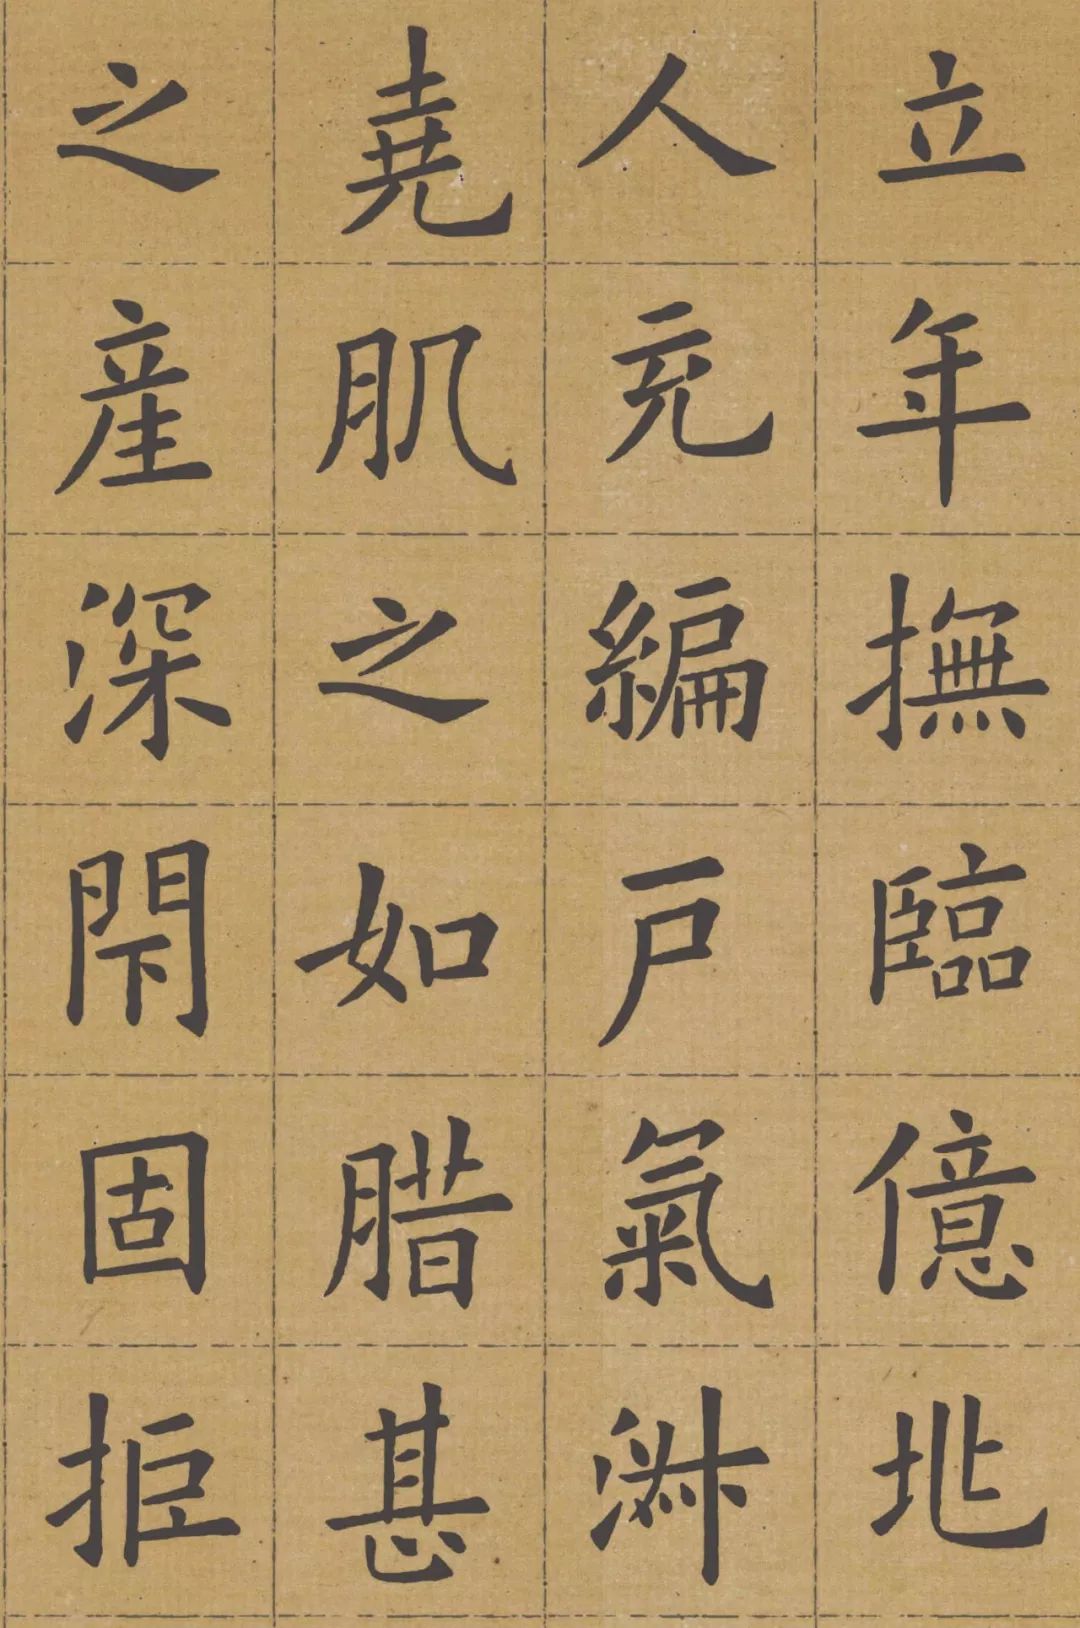 立年撫臨億兆
人充編戶氣淑
堯肌之如腊甚
之産深閇固拒